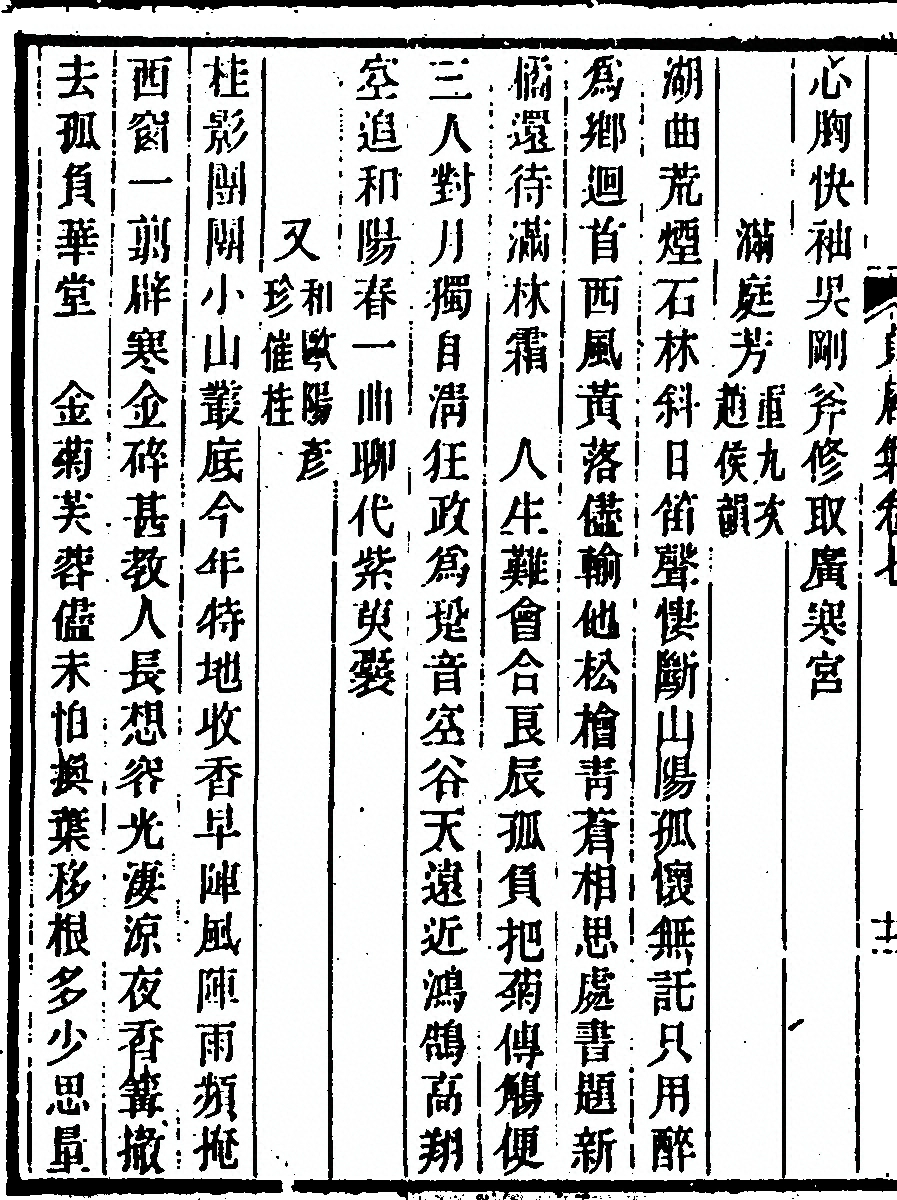 心胸快袖吳剛斧修取廣寒宮
滿庭芳重九亥趙侯韻
湖曲荒煙石林斜日笛聲悽斷山陽孤懷無託只用醉
為鄉迴首西風黃落儘輸他松檜青蒼相思處書題新
橘還待滿林霜　人生難會合良辰孤負把菊傳觴便
三人對月獨自清狂政為跫音空谷天遠近鴻鵠高翔
空追和陽春一曲聊代紫萸囊
又和歐陽彥珍催桂
桂影團團小山叢底今年特地收香早陣風陣雨頻掩
西窗一剪辟寒金碎甚教人長想容光淒涼夜香篝撤
去孤負華堂　金菊芙蓉儘未怕換葉移根多少思量